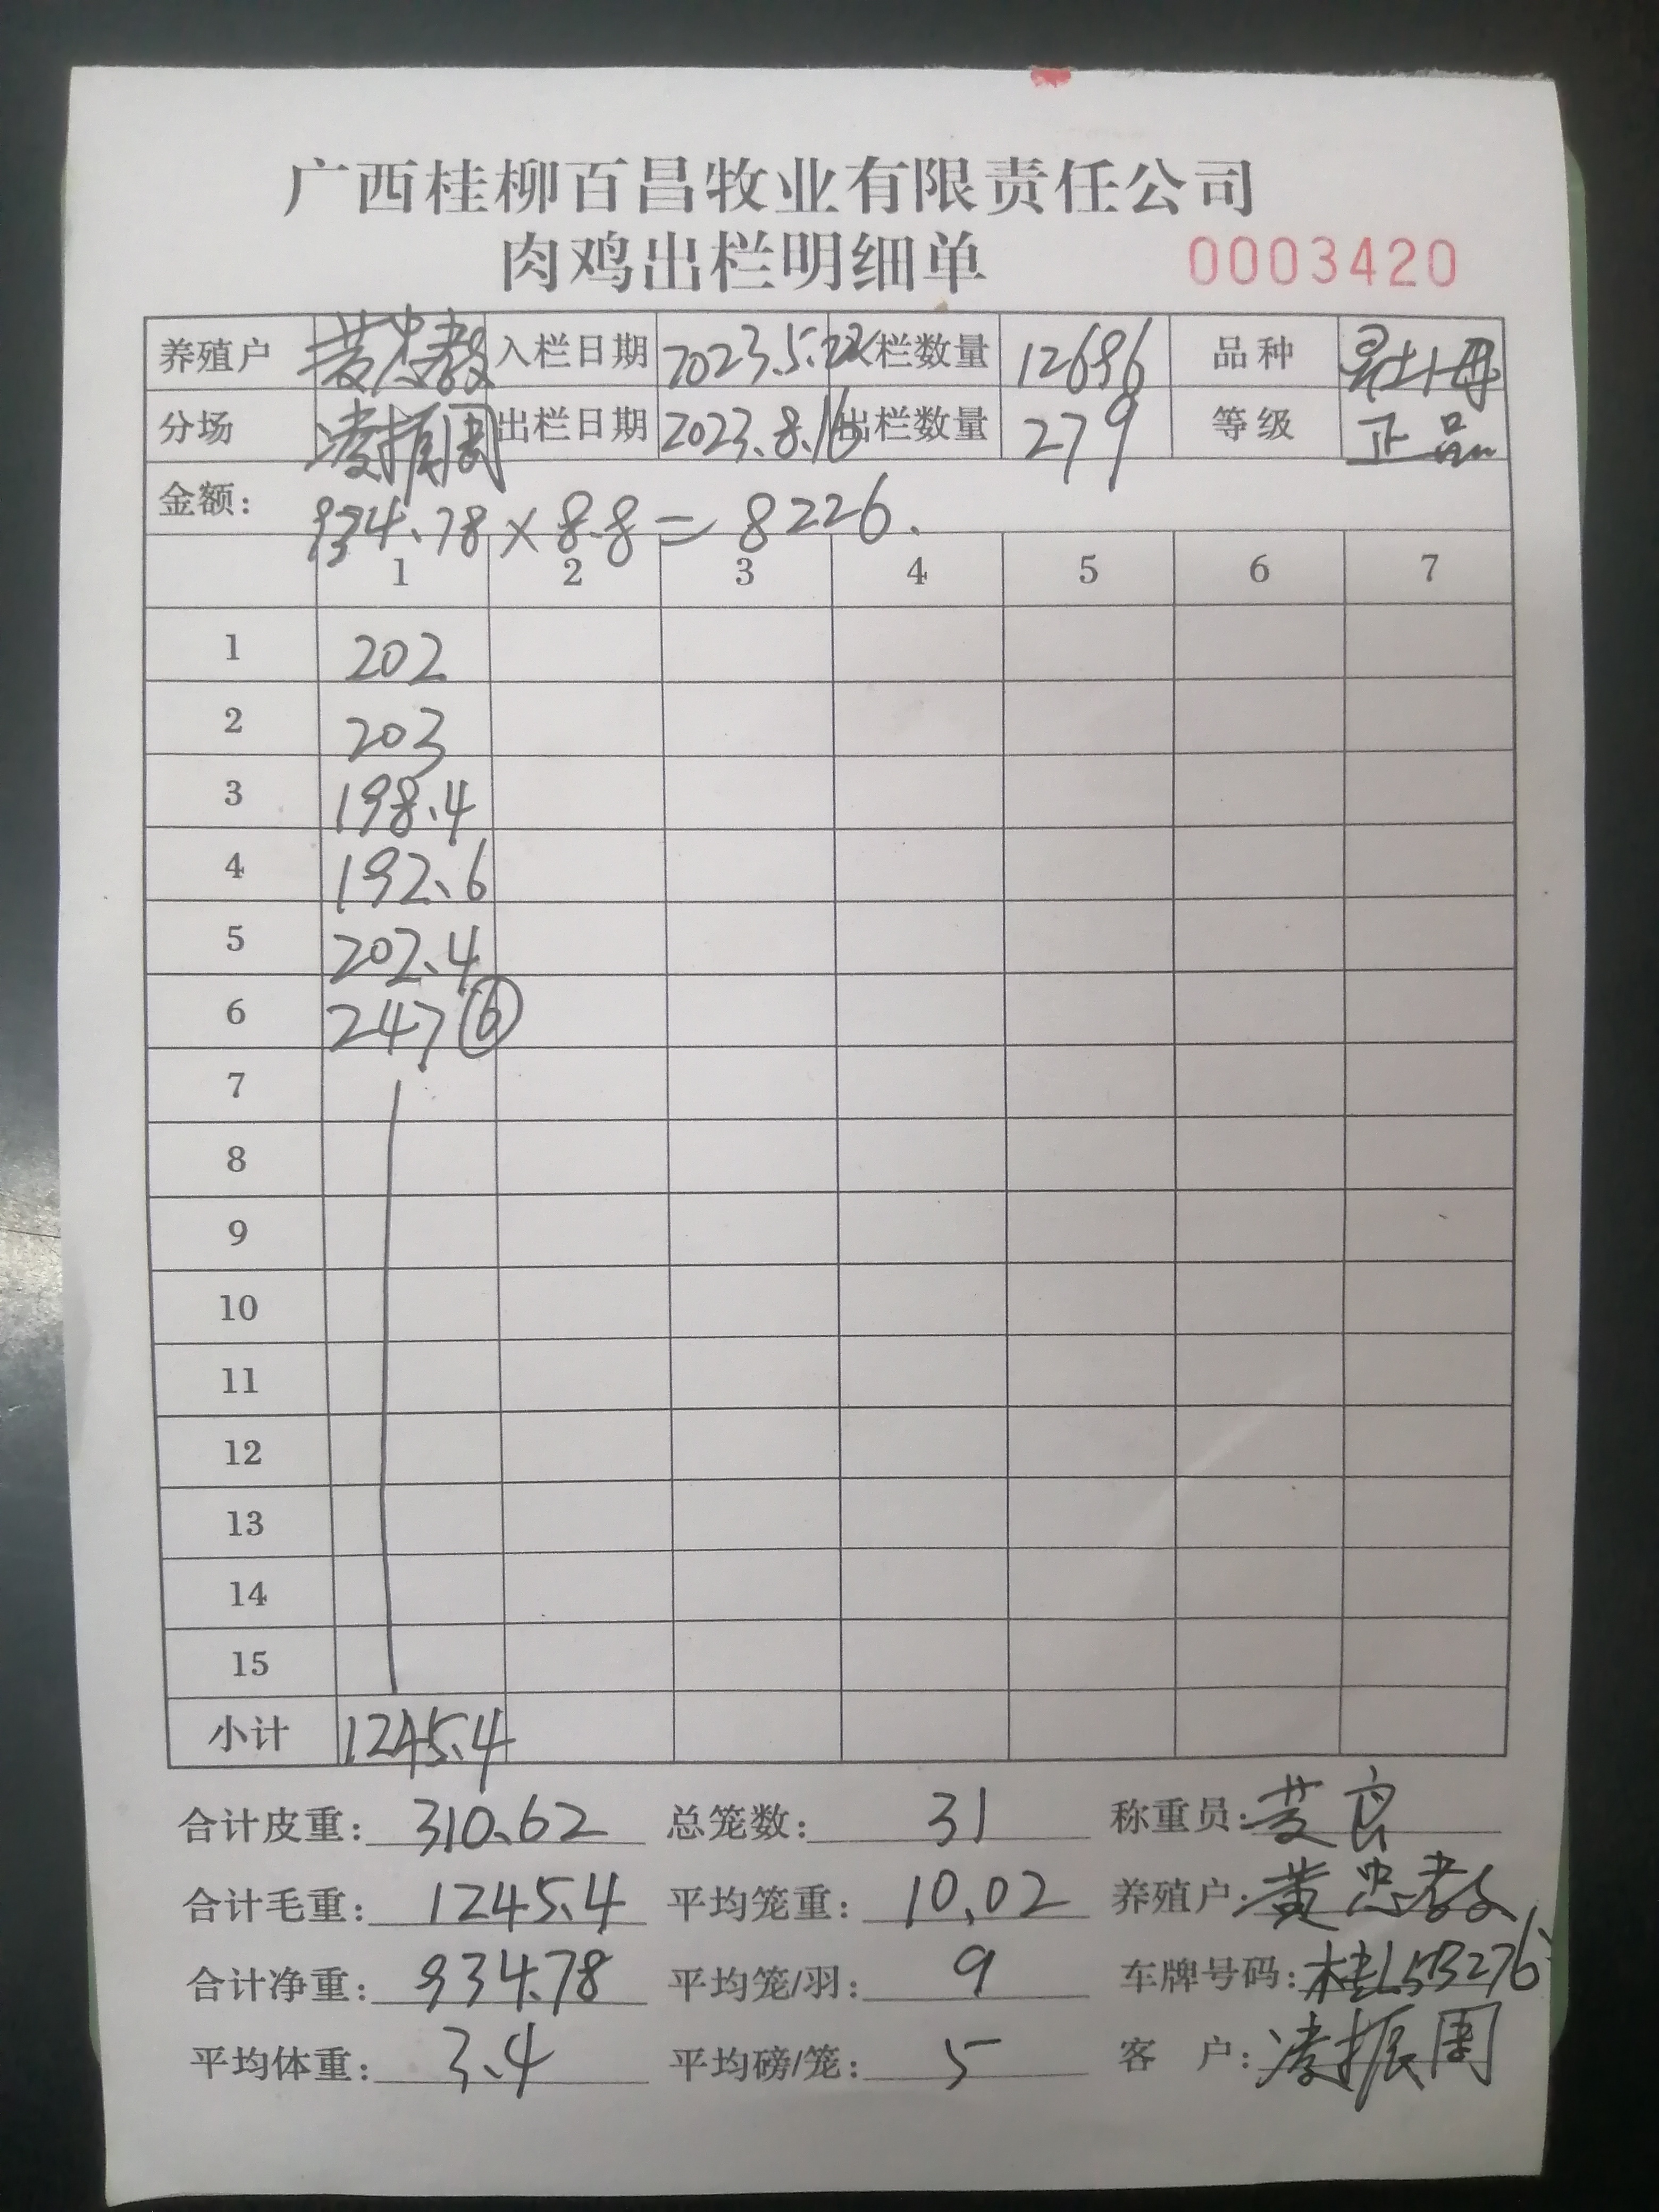 广西桂柳百昌牧业有限责任公司
肉鸡出栏明细单 0003420
养殖户 黄忠教 入栏日期 2023.5.22 入栏数量 12696 品种
分场 凌振周 出栏日期 2023.8.16 出栏数量 279 等级 正品
金额: 934.78×8.8=8226.
1 2 3 4 5 6 7
1 202
2 203
3 198.4
4 192.6
5 202.4
6 247 ⑥
7
8
9
10
11
12
13
14
15
小计 1245.4
合计皮重: 310.62 总笼数: 31 称重员:
合计毛重: 1245.4 平均笼重: 10.02 养殖户: 黄忠教
合计净重: 934.78 平均笼/羽: 9 车牌号码: 桂L5B276
平均体重: 3.4 平均磅/笼: 5 客户: 凌振周